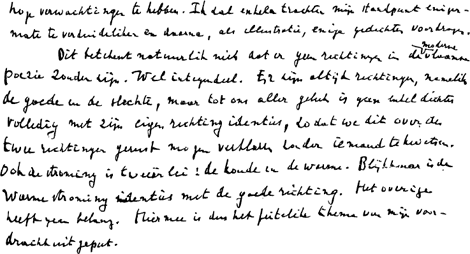 hoge verwachtingen te hebben. Ik zal enkel trachten mijn standpunt eniger-
mate te verduidelijken en daarna, als illustratie, enige gedichten voordragen.
Dit betekent natuurlijk niet dat er geen richtingen in de moderne
poëzie zouden zijn. Wel integendeel. Er zijn altijd richtingen, namelijk
de goede en de slechte, maar tot ons aller geluk is geen enkel dichter
volledig met zijn eigen richting identies, zodat we dit over de
twee richtingen gerust mogen verklaren zonder iemand te kwetsen.
Ook de stroming is tweeërlei: de koude en de warme. Blijkbaar is de
warme stroming identies met de goede richting. Het overige
heeft geen belang. Hiermee is dus het feitelike thema van mijn voor-
dracht uitgeput.